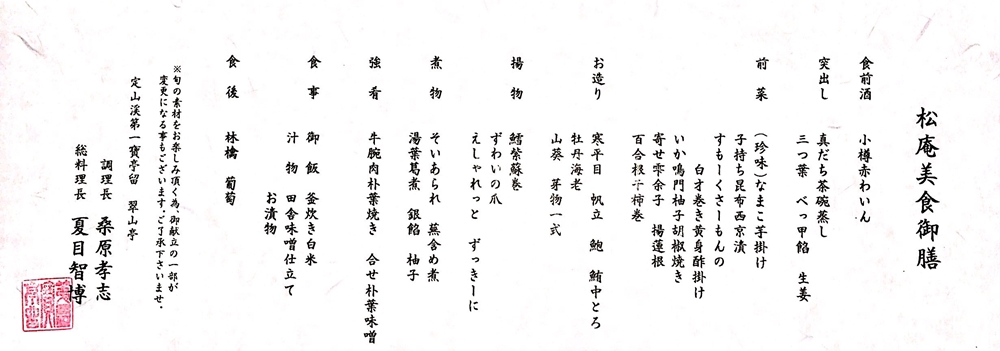 松庵美食御膳
食前酒　小樽赤わいん
突出し　真だち茶碗蒸し
三つ葉　べっ甲餡　生姜
前菜　（珍味）なまこ芋掛け
子持ち昆布西京漬
すもーくさーもんの
白才巻き黄身酢掛け
いか鳴門柚子胡椒焼き
寄せ雫余子　揚蓮根
百合根干柿巻
お造り　寒平目　帆立　鮑　鮪中とろ
牡丹海老
山葵　芽物一式
揚物　鱈紫蘇巻
ずわいの爪
えしゃれっと　ずっきーに
煮物　そいあられ　蕪含め煮
湯葉葛煮　銀餡　柚子
強肴　牛腕肉朴葉焼き　合せ朴葉味噌
食事　御飯　釜炊き白米
汁物　田舎味噌仕立て
お漬物
食後　林檎　葡萄
※旬の素材をお楽しみ頂く為、御献立の一部が
変更になる事もございます。ご了承下さいませ。
定山渓第一寶亭留　翠山亭
調理長　桑原孝志
総料理長　夏目智博